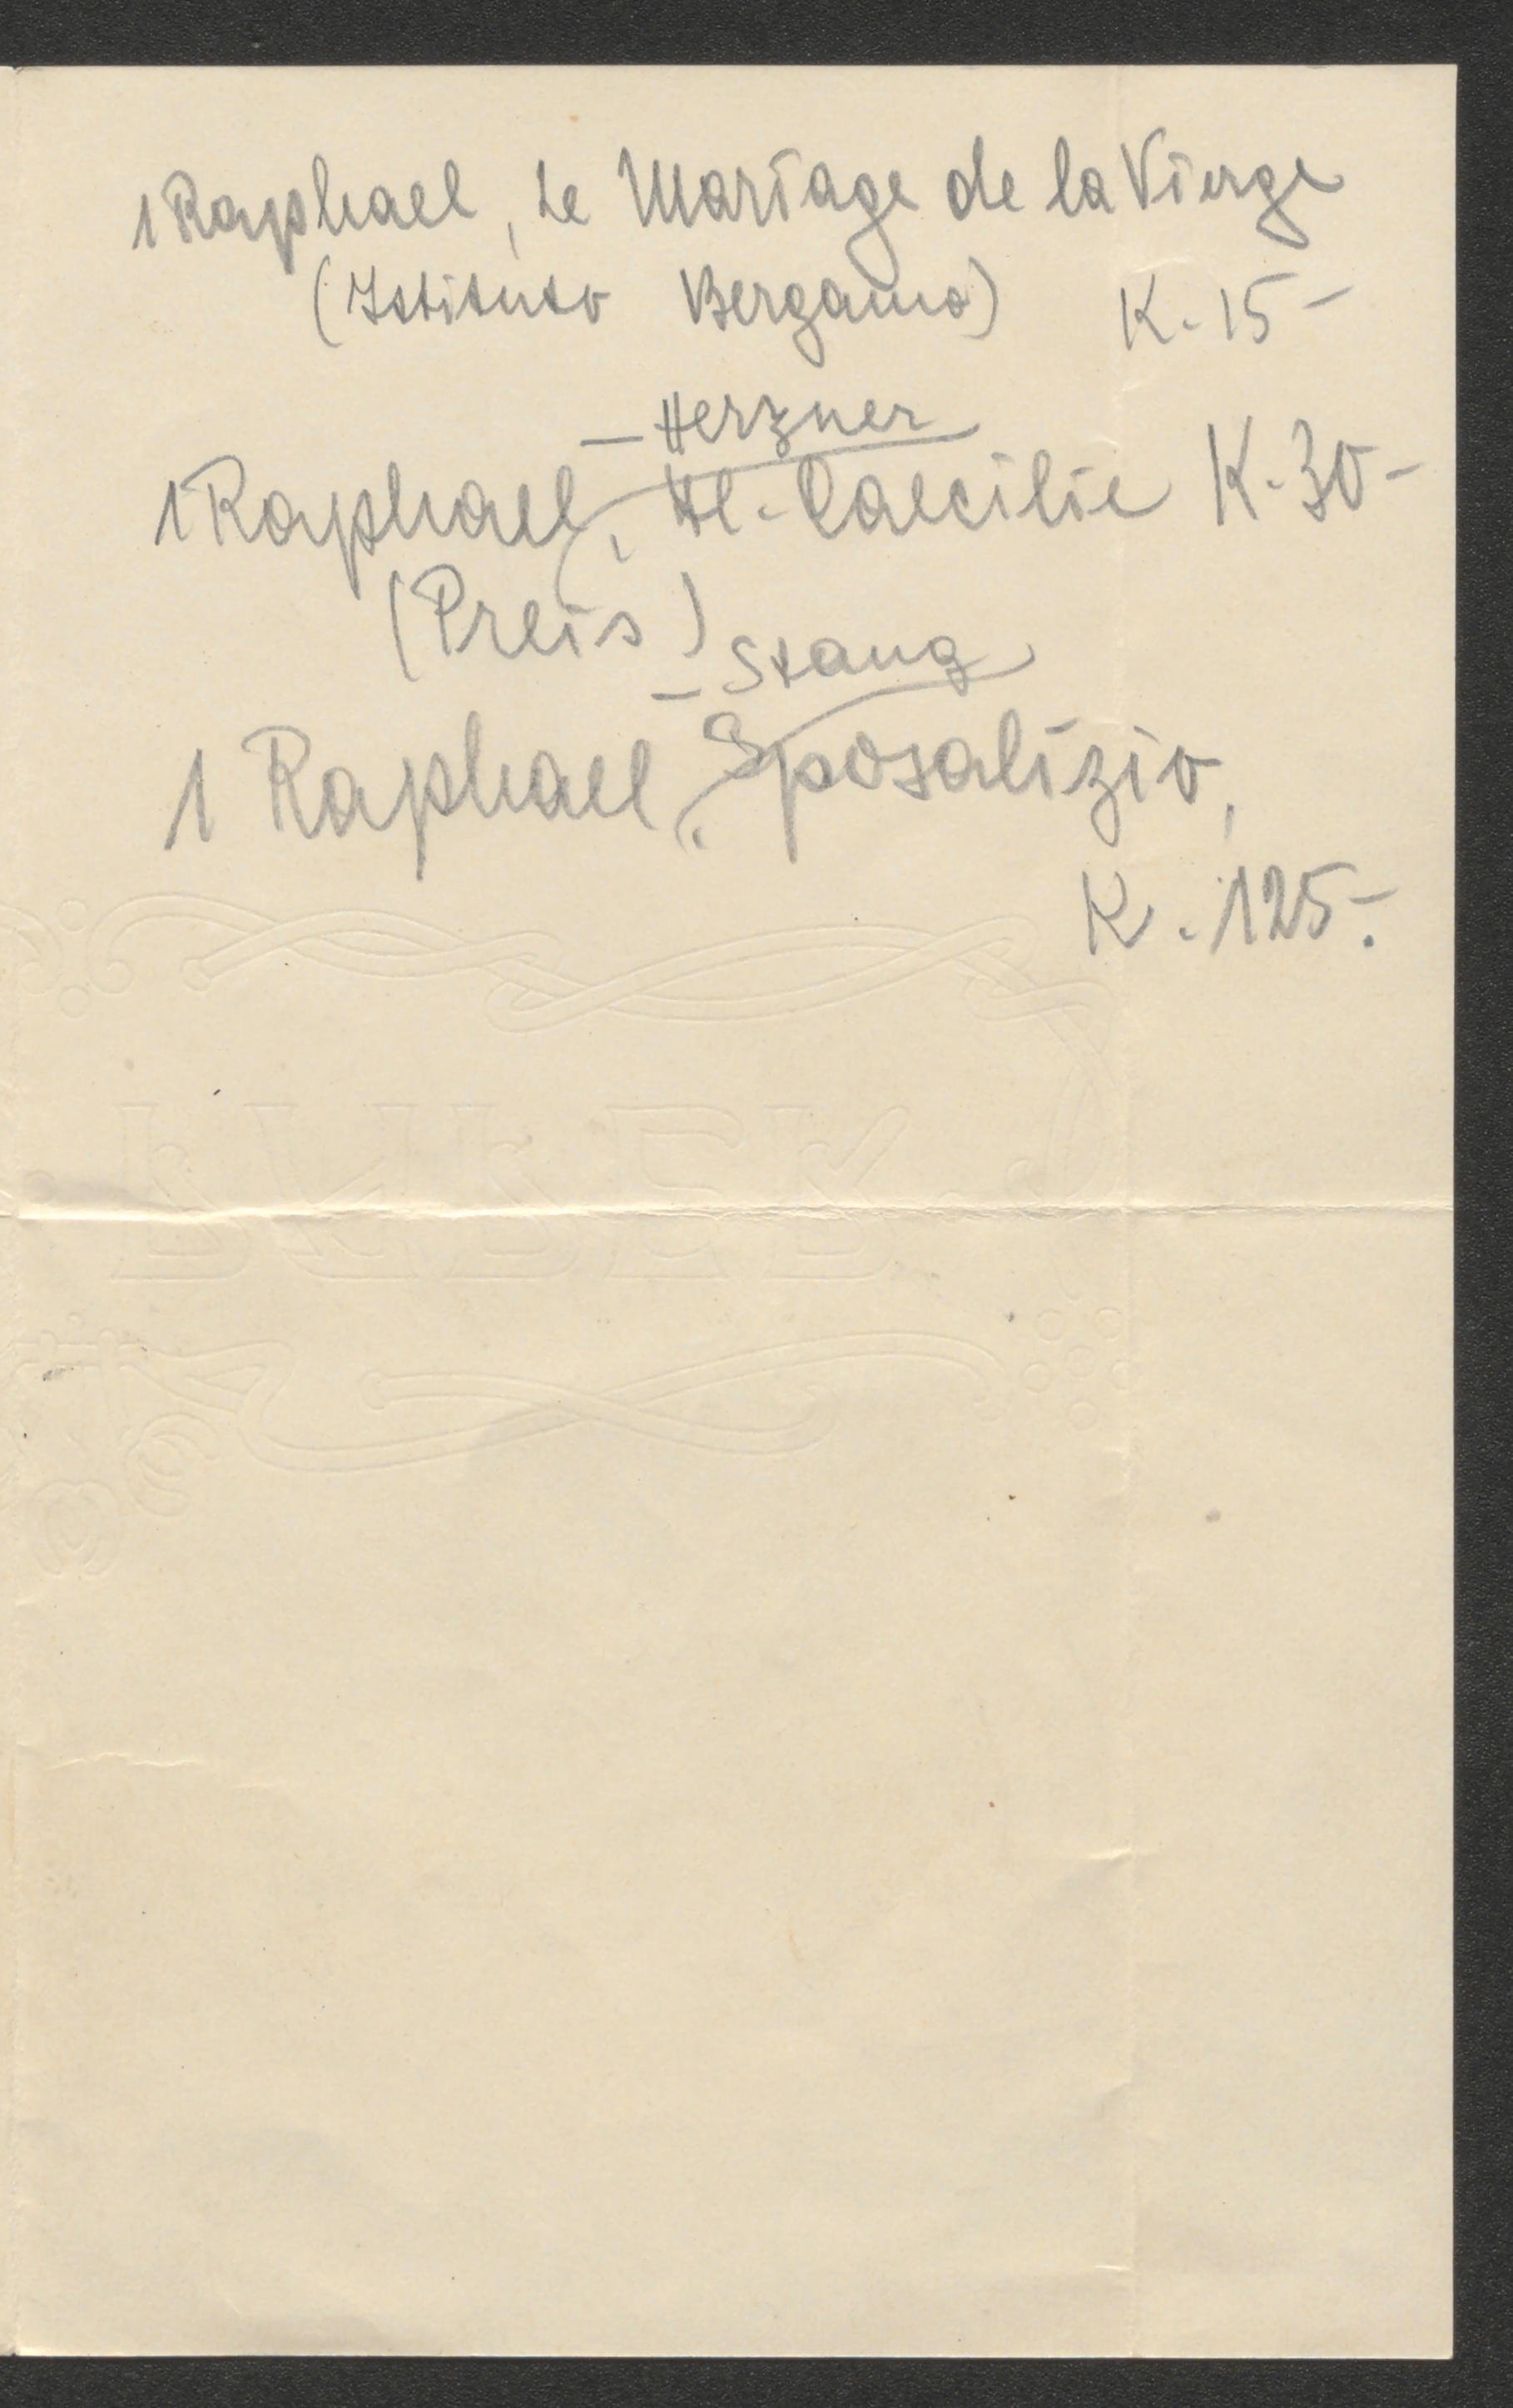 1 Raphael, Le Mariage de la Vierge
(Istituto Bergamo) K. 15 -
- Herzner
1 Raphael, Hl. Caecilie K. 30 -
(Preis)
- Stang
1 Raphael, Sposalizio,
K. 125.-